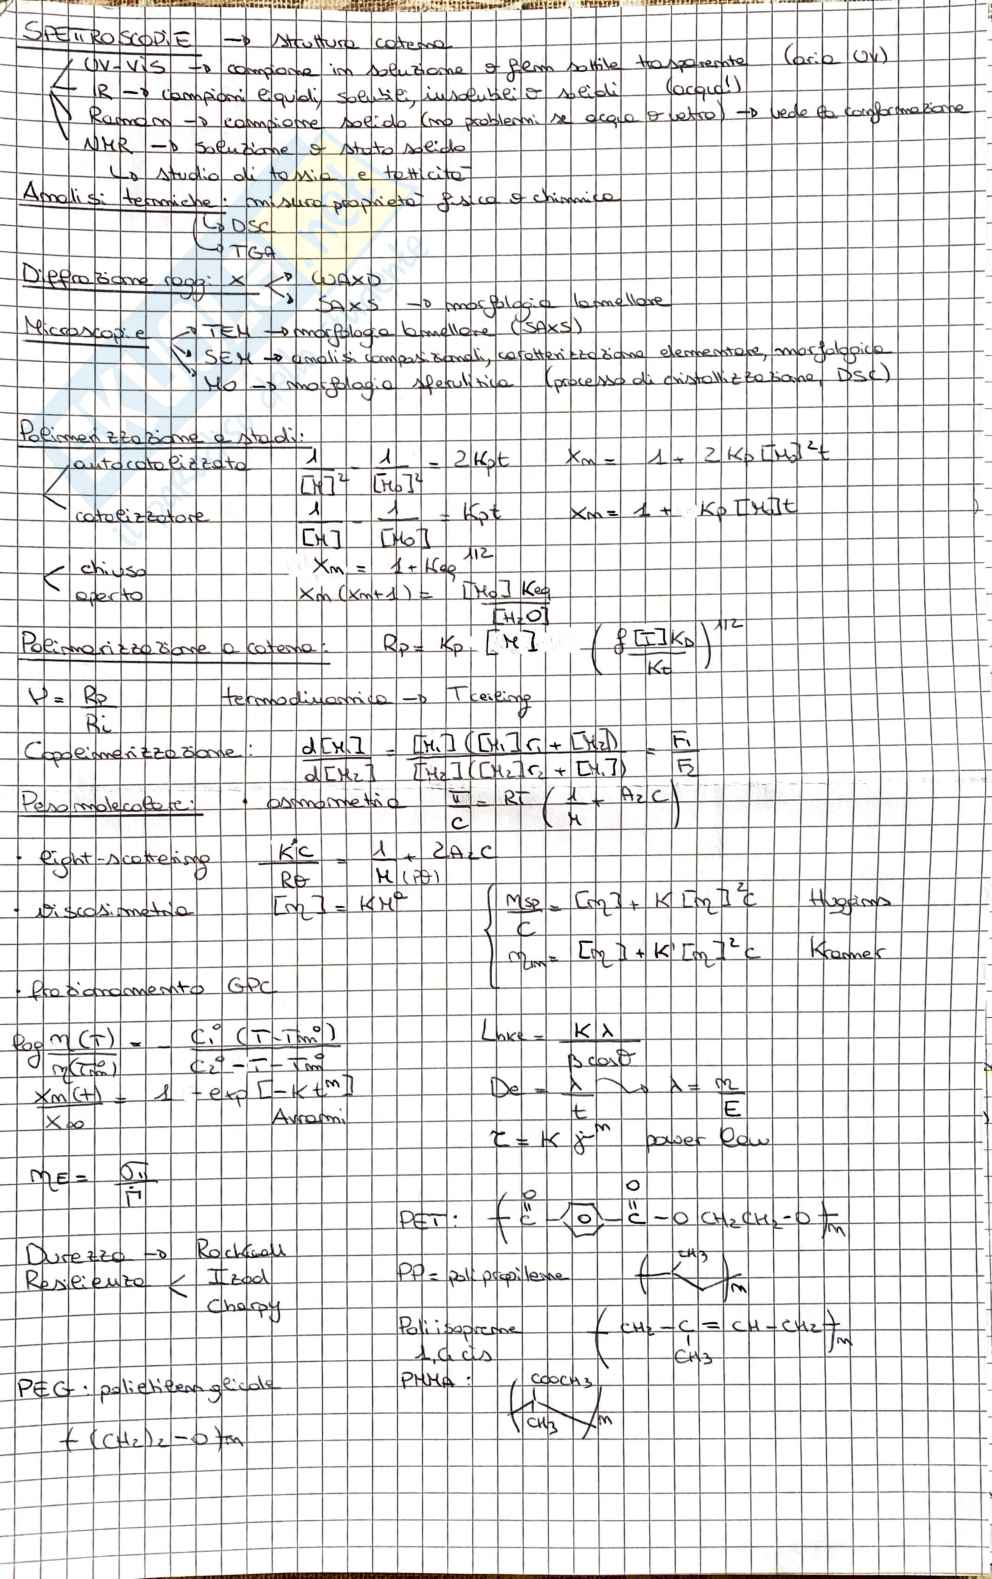 SPETTROSCOPIE → struttura catena
UV-Vis → campione in soluzione o film sottile trasparente (aria UV)
IR → campioni liquidi, solubili, insolubili o solidi (acqua!)
Raman → campione solido (no problemi se acqua o vetro) → vede la conformazione
NMR → soluzione o stato solido
↳ studio di tassia e tatticità
Analisi termiche: misura proprietà fisica o chimica
↳ DSC
↳ TGA
Diffrazione raggi X WAXD
SAXS → morfologia lamellare
Microscopie TEM → morfologia lamellare (SAXS)
SEM → analisi composizionali, caratterizzazione elementare, morfologica
MO → morfologia sferulitica (processo di cristallizzazione, DSC)
Polimerizzazione a stadi:
autocatalizzata 1/[M]² - 1/[M₀]² = 2Kpt Xm = 1 + 2Kp[M₀]²t
catalizzatore 1/[M] - 1/[M₀] = Kpt Xm = 1 + Kp[M]t
chiuso Xm = 1 + Keq^1/2
aperto Xm(Xm+1) = [M₀]Keq/[H₂O]
Polimerizzazione a catena: Rp = Kp·[M] (f[I]KD/Kt)^1/2
ν = Rp/Ri termodinamica → Tceiling
Copolimerizzazione: d[M₁]/d[M₂] = [M₁]([M₁]r₁ + [M₂])/[M₂]([M₂]r₂ + [M₁]) = F₁/F₂
Peso molecolare: • osmometria π/C = RT (1/M + A₂C)
• light-scattering K'C/Rθ = 1/M(Pθ) + 2A₂C
• viscosimetria [η] = KMᵃ ηsp/C = [η] + K[η]²C Huggins
ηin = [η] + K'[η]²C Kramer
• frazionamento GPC
log η(T)/η(Tm°) = - C₁°(T-Tm°)/C₂°-T-Tm° Lhkl = Kλ/βcosθ
Xm(t)/X∞ = 1 - exp[-Ktᵐ] De = λ/t λ = η/E
Avrami
τ = K γ̇ᵐ power law
ηE = σ₁₁/Γ̇
PET: (C(=O)-O-C(=O)-O CH₂CH₂-O)m
Durezza → Rockwell
Resilienza Izod PP = polipropilene CH3 m
Charpy
Poliisoprene (CH₂-C=CH-CH₂)m
1,4 cis CH3
PEG: polietilenglicole PMMA: COOCH3
CH3 m
(-(CH₂)₂-O)m